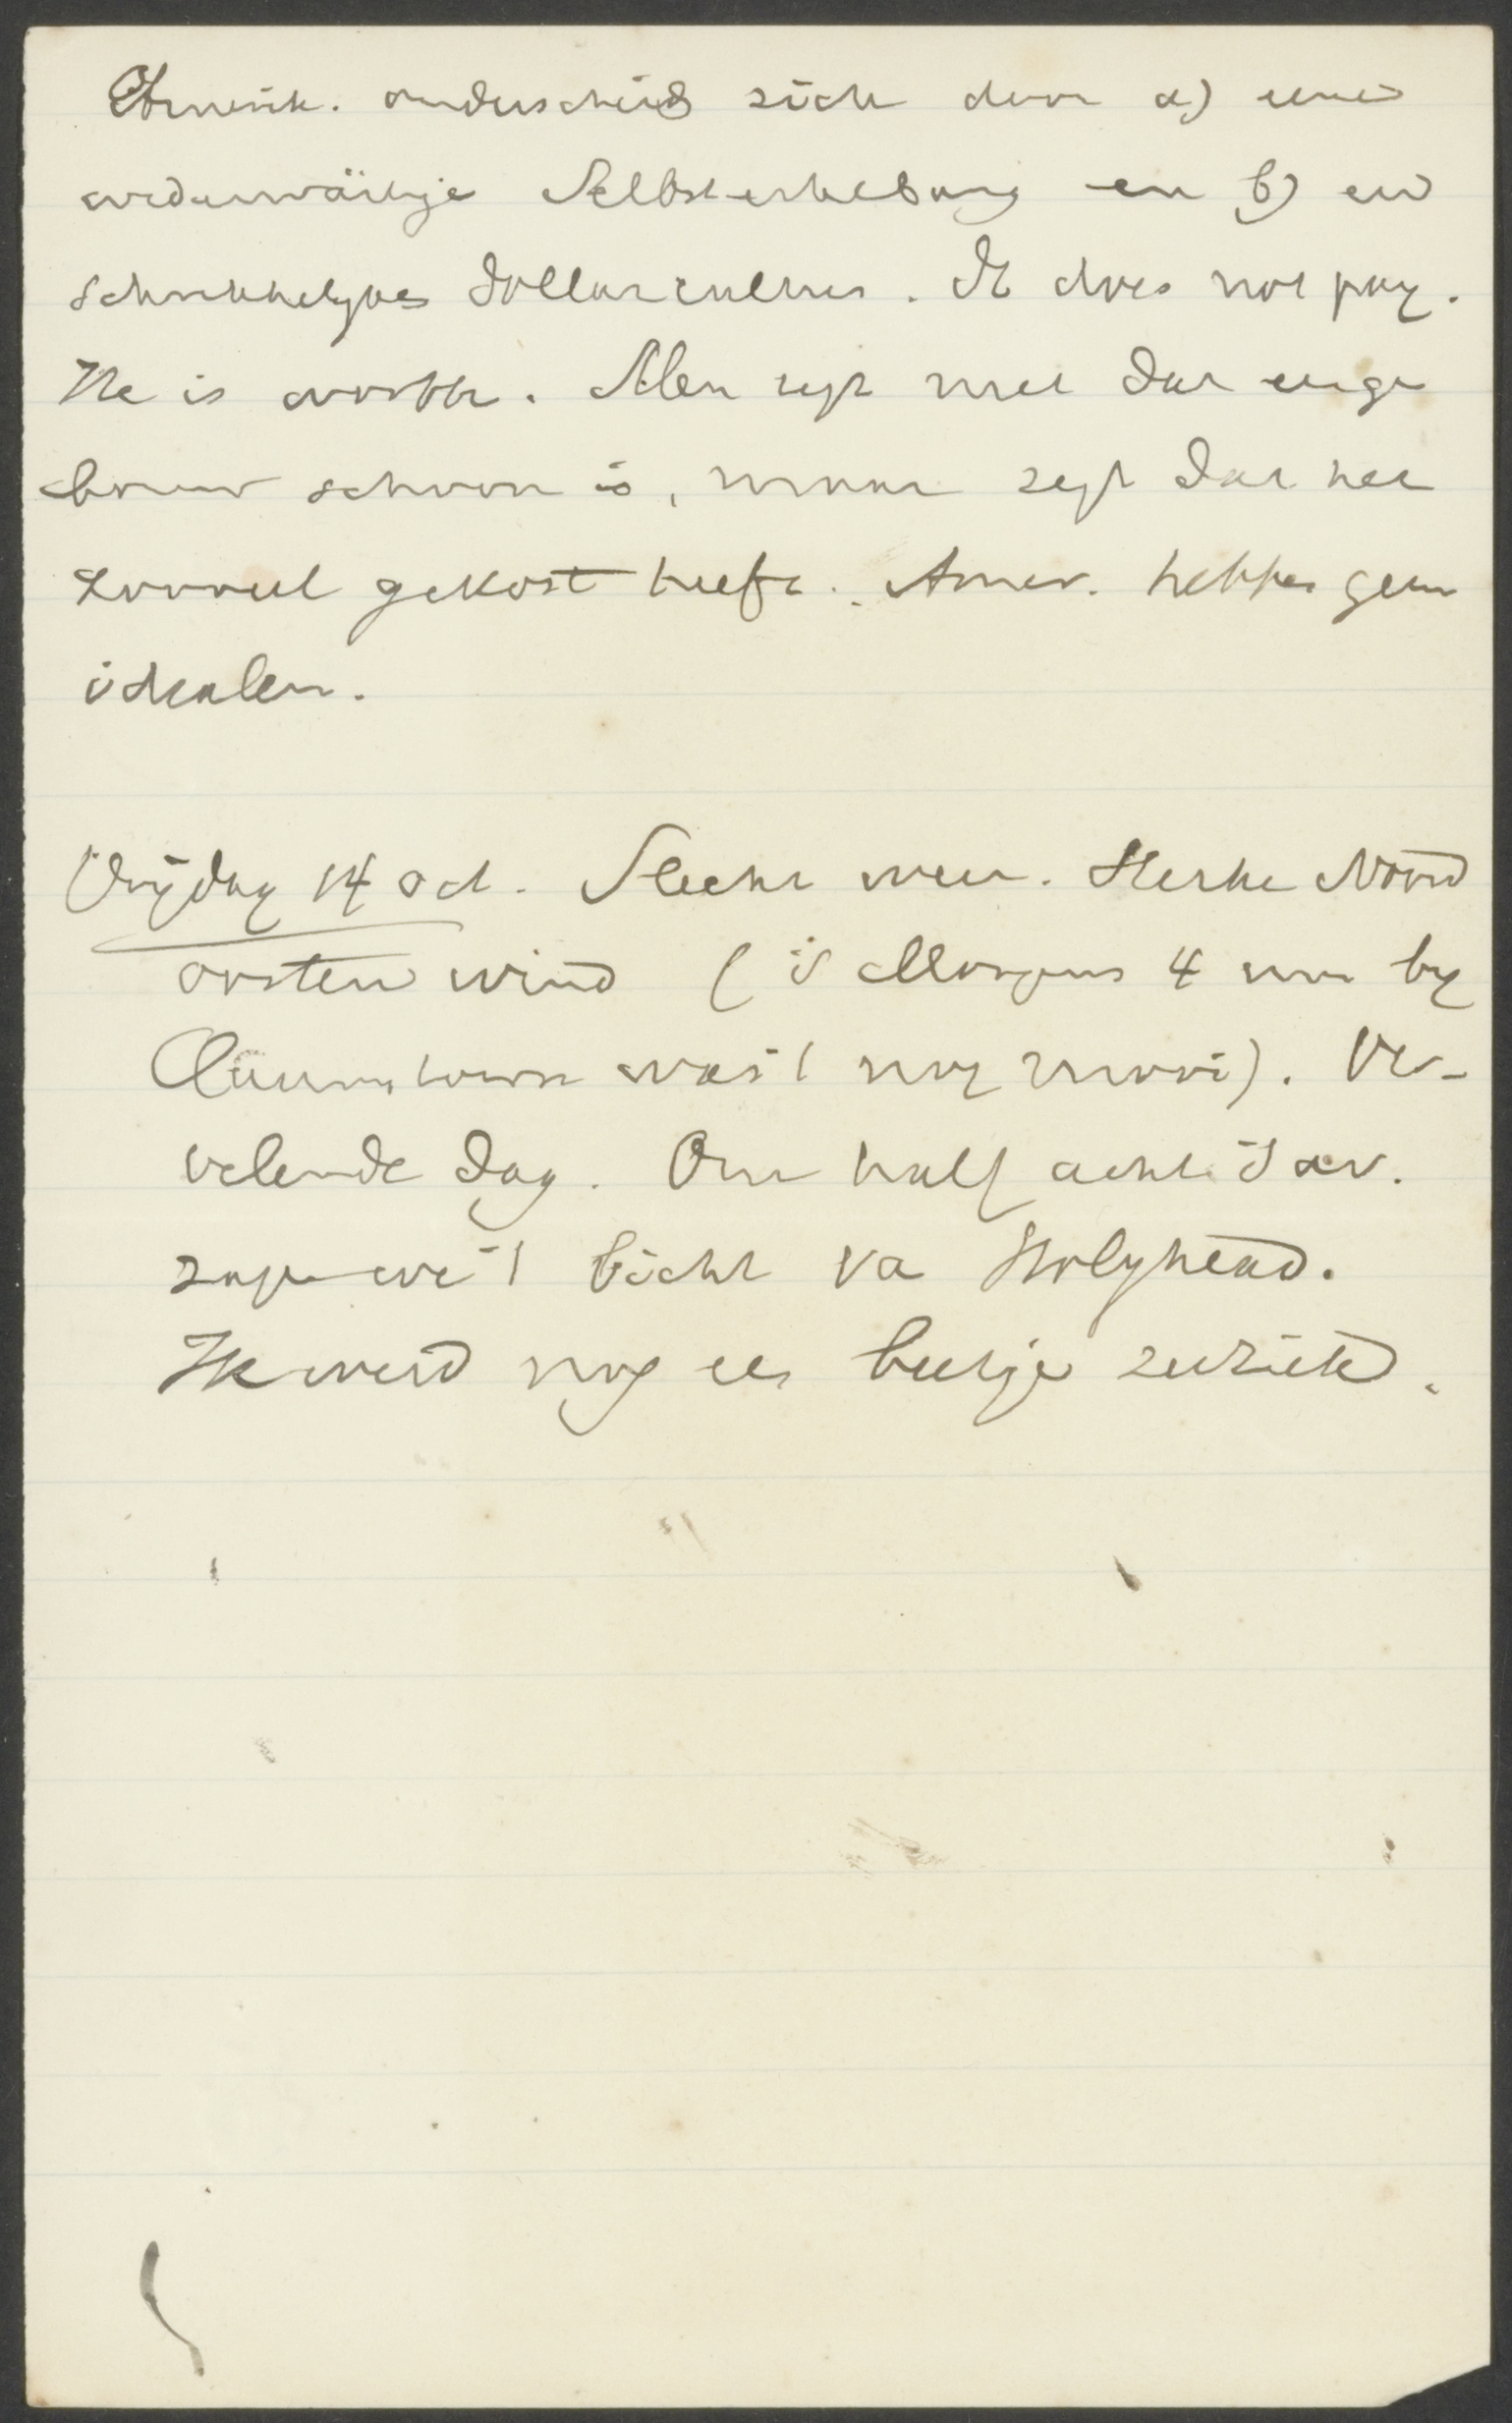 Amerik. onderscheid zich door a) eene
widerwärtige Selbsterhebung en b) een
schrikkelyke dollarcultus. It does not pay.
He is worth. Men zegt niet dat enige
bouw schoon is, maar zegt dat het
zooveel gekost heeft. Amer. hebben geen
idealen.
Vrijdag 14 Oct. Slecht weer. Sterke Noord
oosten wind ('s Morgens 4 uur by
Queenstown was 't nog mooi). Ver-
velende dag. Om half acht 's av.
zagen we 't licht va Holyhead.
Ik werd nog een beetje zeeziek.